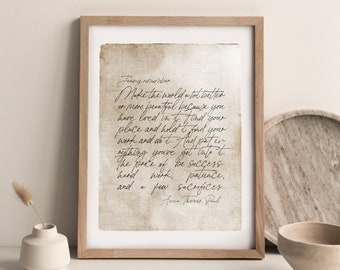 Make the world a bit better
or more beautiful because you
have lived in it. Find your
place and hold it find your
work and do it. And put
everything you've got into it.
the price of success:
hard work, patience,
and a few sacrifices.